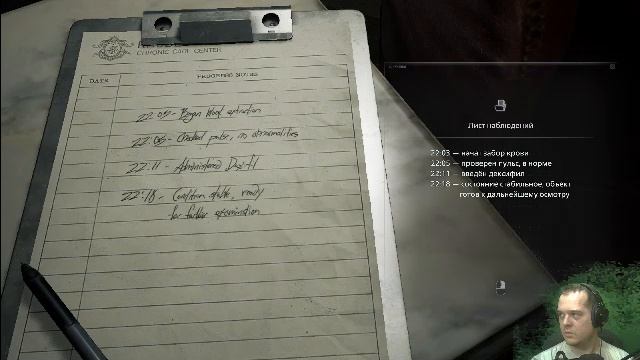 CHRONIC CARE CENTER
DATE
PROGRESS NOTES
22:03 - Began blood extraction
22:05 - Checked pulse, no abnormalities
22:11 - Administered
22:18 - Condition stable, ready
for further examination
Лист наблюдений
22:03 — начат забор крови
22:05 — проверен пульс, в норме
22:11 — введён дексифил
22:18 — состояние стабильное, объект
готов к дальнейшему осмотру